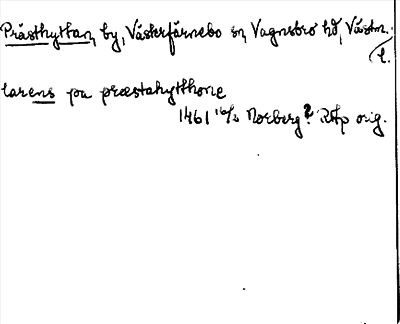 Prästhyttan, by, Västerfärnebo sn, Vagnsbro hd, Västm.
l.
larens pa præstahytthone
1461 16/2 Norberg? RAp orig.